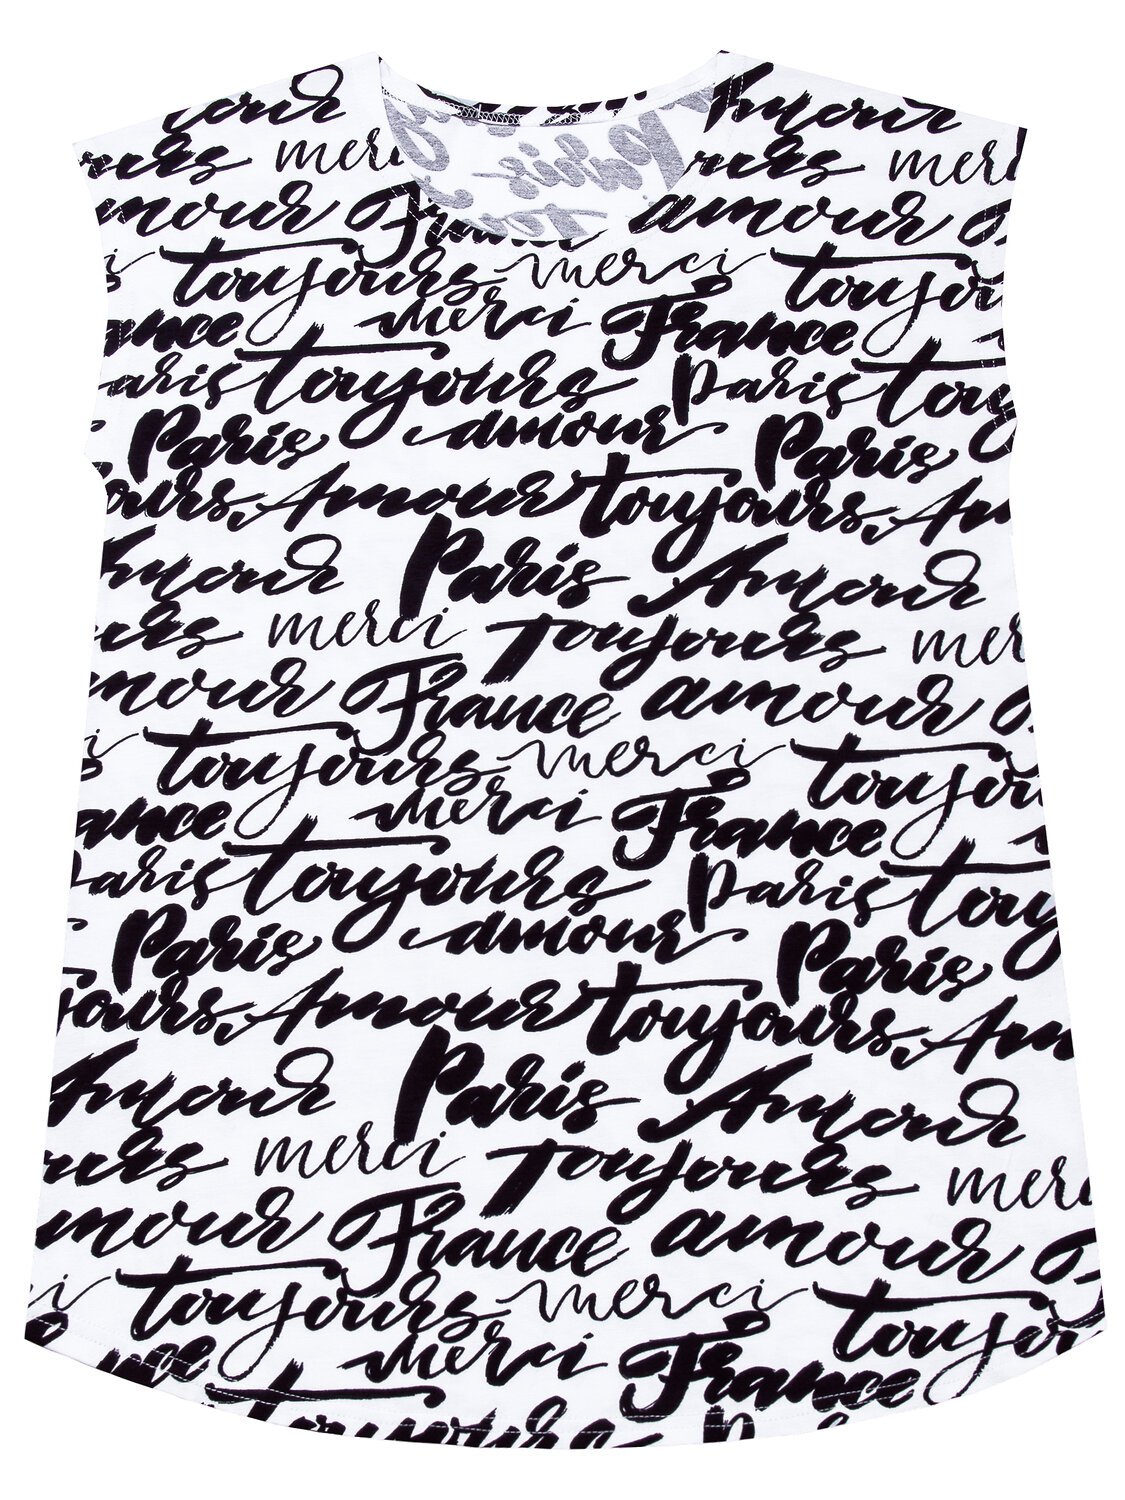 Amour Amour
merci merci
amour France amour
toujours, merci toujours
France merci France
Paris toujours Paris toujours
Paris amour Paris
toujours, Amour toujours, Amour
Amour Paris Amour
merci Toujours merci
amour France amour
toujours, merci toujours
France merci France
Paris toujours Paris toujours
Paris amour Paris
toujours, Amour toujours, Am
Amour Paris Amour
merci Toujours merci
amour France amour
toujours, merci toujours
merci France